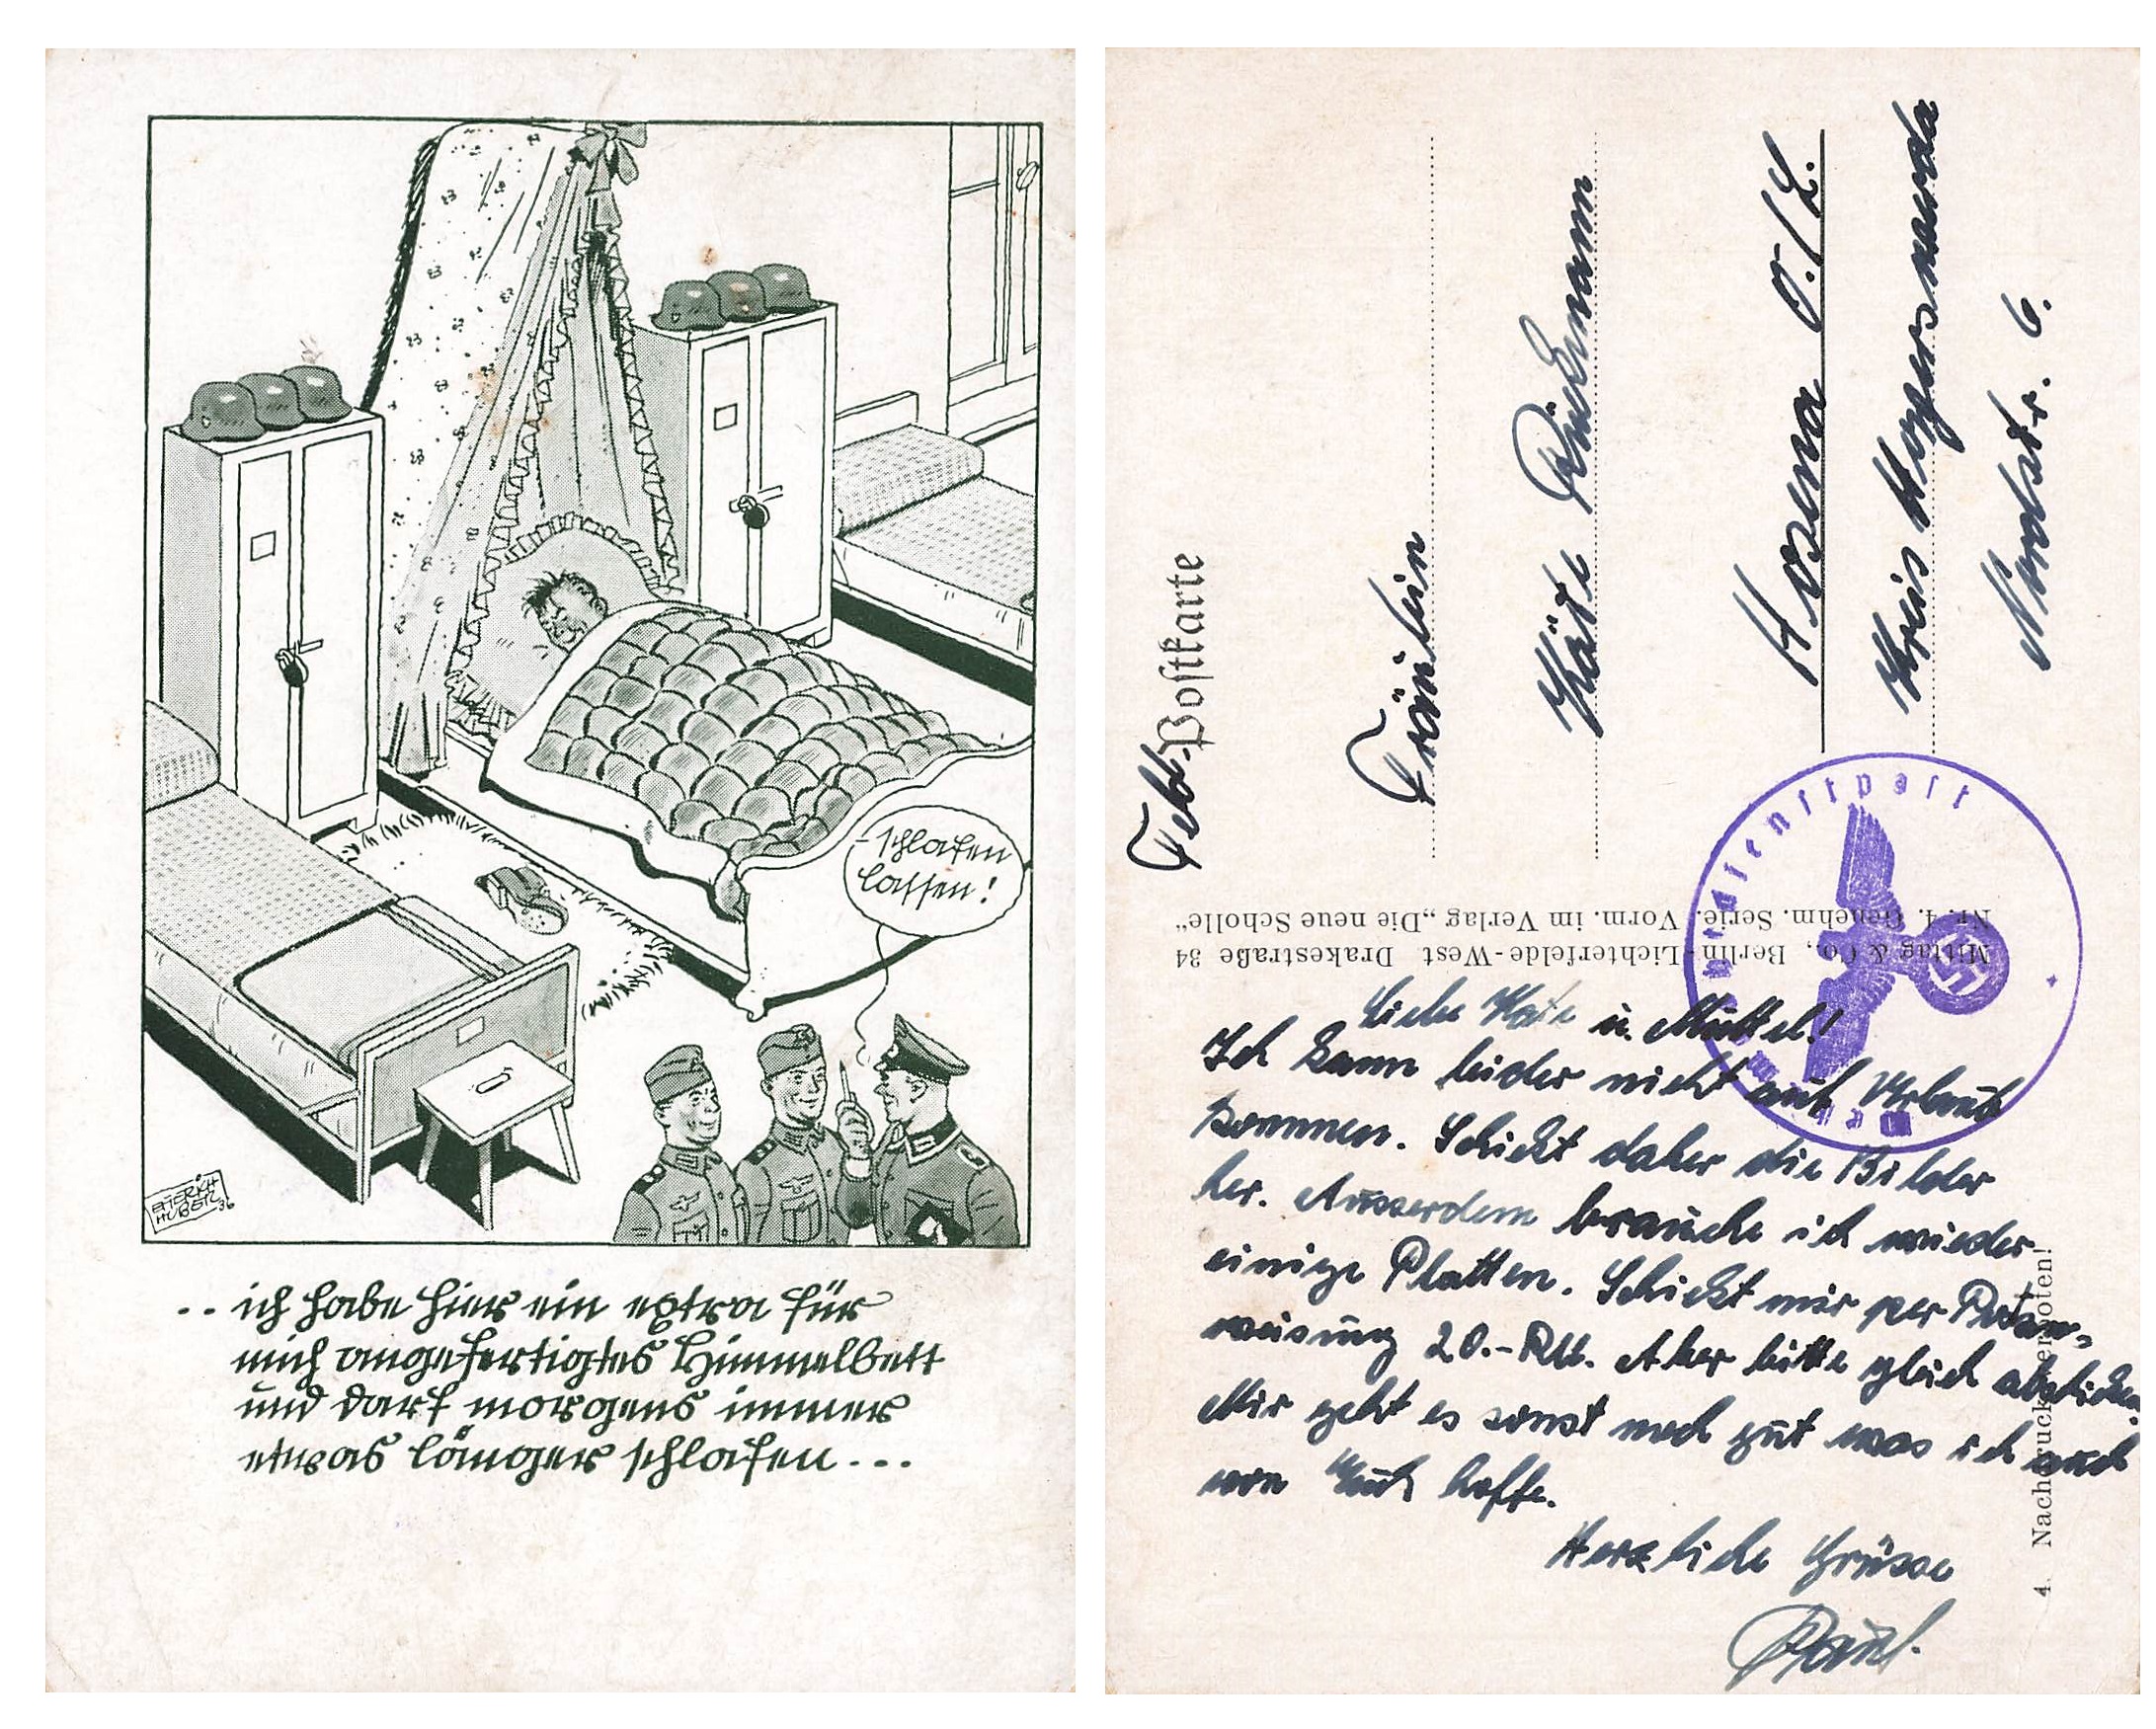 - schlafen
lassen!
DIETRICH
HUBETI
36
.. ich habe hier ein extra für
mich angefertigtes Himmelbett
und darf morgens immer
etwas länger schlafen...
Feld-Postkarte
Fräulein
Käte
Hosena O./L.
Kreis Hoyerswerda
Nordstr. 6.
Mittag & Co., Berlin-Lichterfelde-West Drakestraße 34
Nr. 4. Genehm. Serie. Vorm. im Verlag „Die neue Scholle“
Liebe Käte u. Muttel!
Ich kann leider nicht auf Urlaub
kommen. Schickt daher die Bilder
her. Ausserdem brauche ich wieder
einige Platten. Schickt mir per Postan-
weisung 20.- RM. Aber bitte gleich abschicken.
Mir geht es sonst noch gut was ich auch
von Euch hoffe.
Herzliche Grüsse
Paul.
4. Nachdruck verboten!